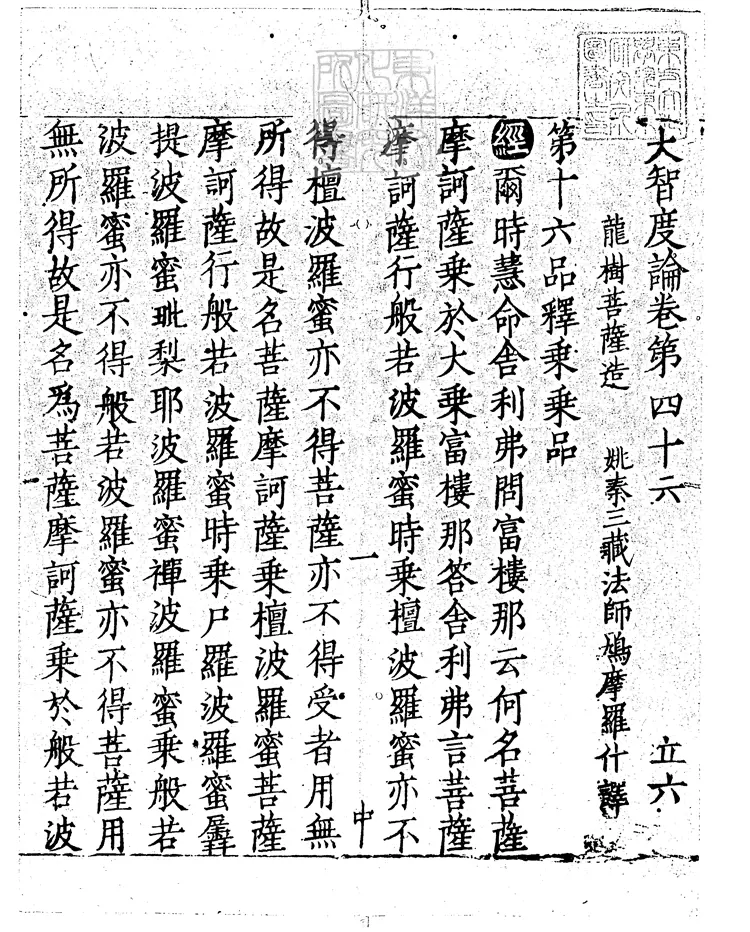 大智度論卷第四十六　立六
龍樹菩薩造　姚秦三藏法師鳩摩羅什譯
第十六品釋乘乘品
經爾時慧命舍利弗問富樓那云何名菩薩
摩訶薩乘於大乘富樓那答舍利弗言菩薩
摩訶薩行般若波羅蜜時乘檀波羅蜜亦不
一　中
得檀波羅蜜亦不得菩薩亦不得受者用無
所得故是名菩薩摩訶薩乘檀波羅蜜菩薩
摩訶薩行般若波羅蜜時乘尸羅波羅蜜羼
提波羅蜜毗梨耶波羅蜜禪波羅蜜乘般若
波羅蜜亦不得般若波羅蜜亦不得菩薩用
無所得故是名為菩薩摩訶薩乘於般若波